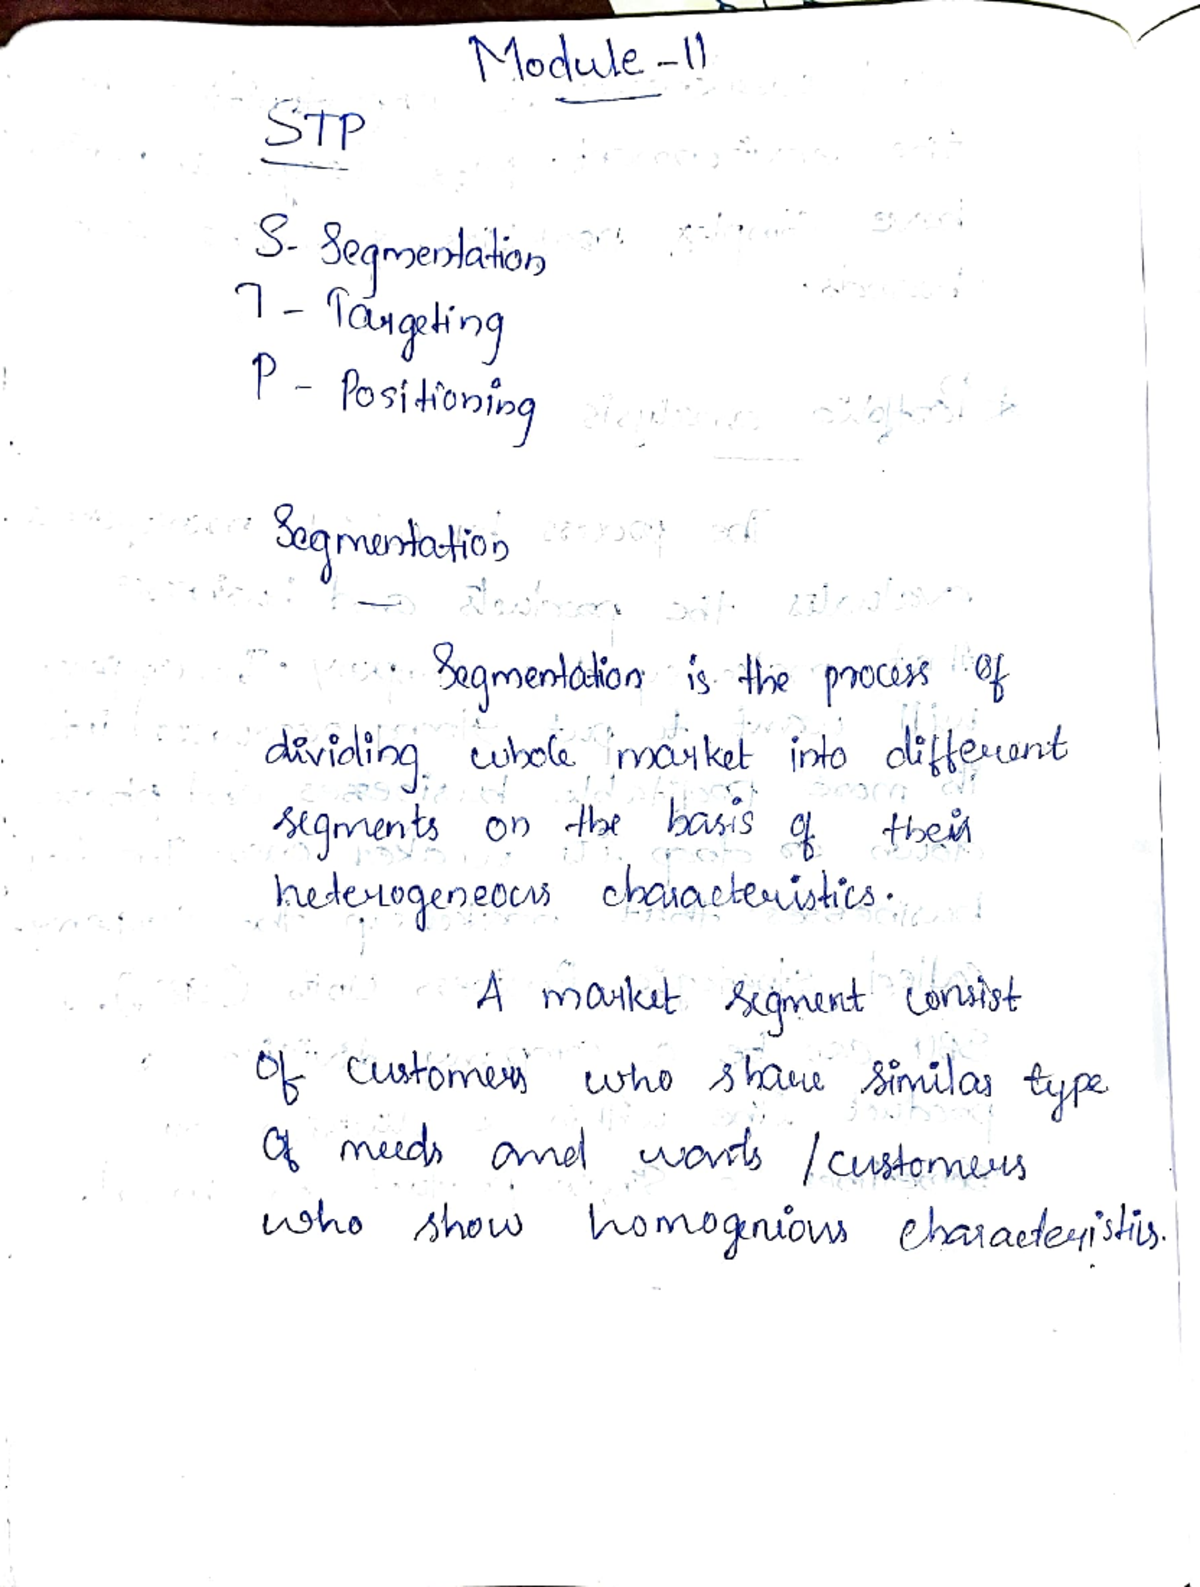 Module - II
STP
S- Segmentation
T - Targeting
P - Positioning
Segmentation
Segmentation is the process of
dividing whole market into different
segments on the basis of their
heterogeneous characteristics.
A market segment consist
of customers who share similar type
of needs and wants / customers
who show homogenious characteristics.